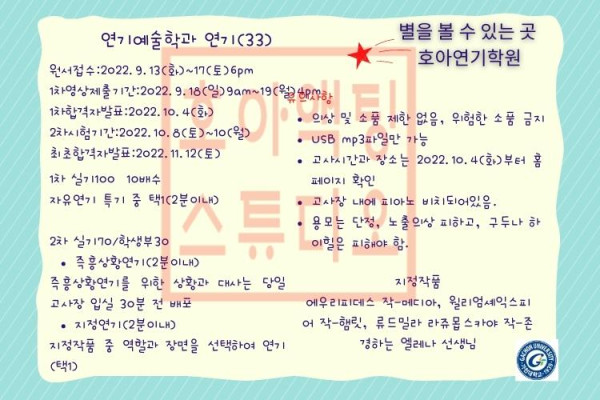 연기예술학과 연기(33)
별을 볼 수 있는 곳
호아연기학원
원서접수:2022. 9. 13(화)~17(토)6pm
1차영상제출기간:2022. 9. 18(일)9am~19(월)4pm
1차합격자발표:2022. 10. 4(화)
2차시험기간:2022. 10. 8(토)~10(월)
최초합격자발표:2022. 11. 12(토)
1차 실기100 10배수
자유연기 특기 중 택1(2분이내)
2차 실기70/학생부30
• 즉흥상황연기(2분이내)
즉흥상황연기를 위한 상황과 대사는 당일
고사장 입실 30분 전 배포
• 지정연기(2분이내)
지정작품 중 역할과 장면을 선택하여 연기
(택1)
유의사항
• 의상 및 소품 제한 없음, 위험한 소품 금지
• USB mp3파일만 가능
• 고사시간과 장소는 2022. 10. 4(화)부터 홈
페이지 확인
• 고사장 내에 피아노 비치되어있음.
• 용모는 단정, 노출의상 피하고, 구두나 하
이힐은 피해야 함.
지정작품
에우리피데스 작-메디아, 윌리엄셰익스피
어 작-햄릿, 류드밀라 라쥬몹스카야 작-존
경하는 엘레나 선생님
호아액팅
스튜디오
GACHON UNIVERSITY